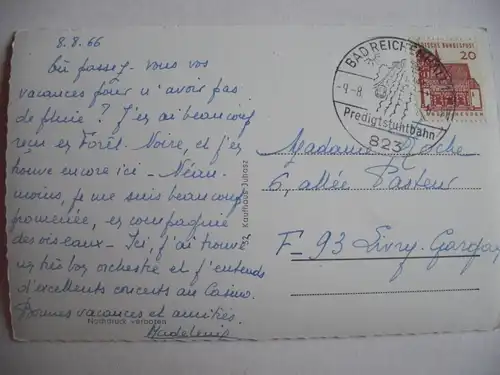 8.8.66
Où passez-vous vos
vacances pour n'avoir pas
de pluie ? J'en ai beaucoup
reçu en Forêt-Noire, et j'en
trouve encore ici - Néan-
moins, je me suis beaucoup
promenée, en compagnie
des oiseaux - Ici, j'ai trouvé
un très bon orchestre et j'entends
d'excellents concerts au Casino.
Bonnes vacances et amitiés.
Nachdruck verboten
52, Kaufhaus Jubasz
BAD REICHENHALL
-9-8
Predigtstuhlbahn
823
DEUTSCHE BUNDESPOST
20
Madame
6, allée Pasteur
F-93 Livry-Gargan